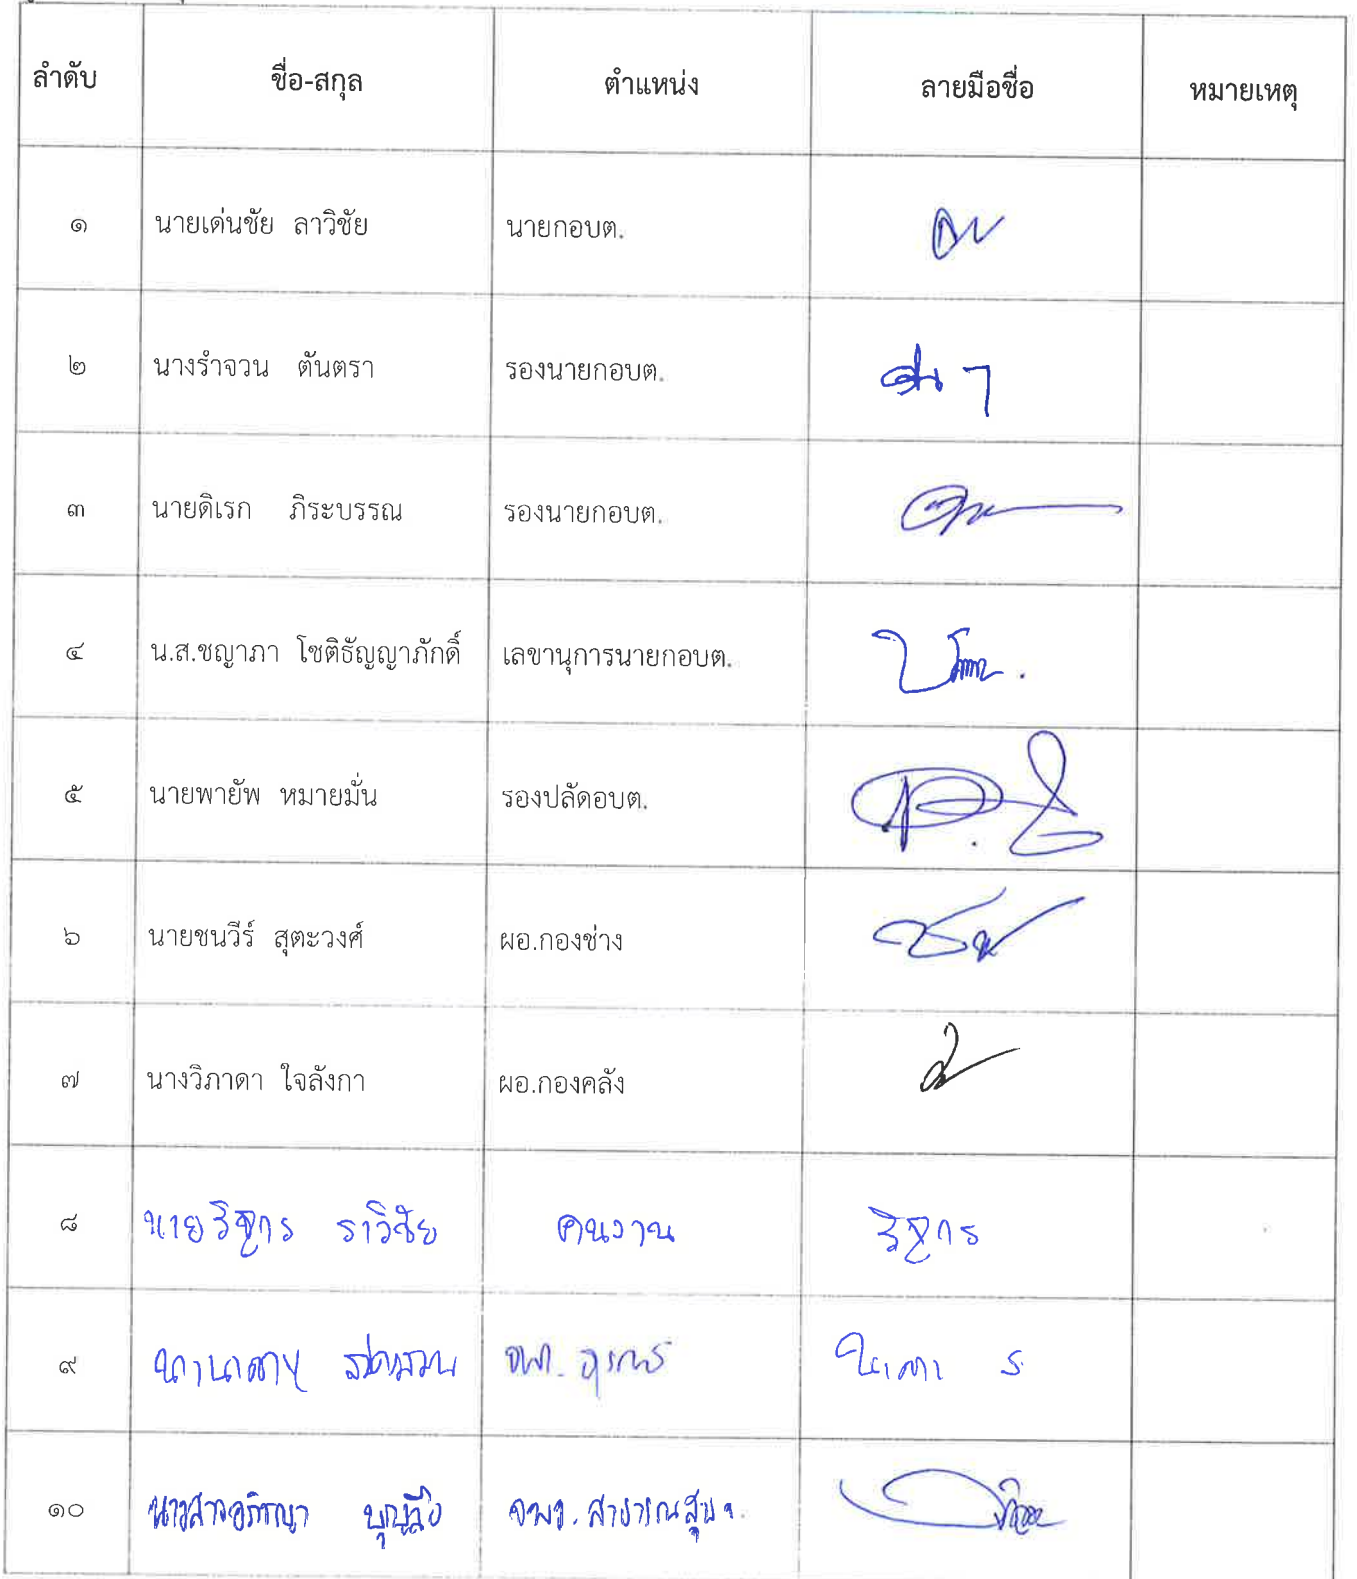 ลำดับ ชื่อ-สกุล ตำแหน่ง ลายมือชื่อ หมายเหตุ
๑ นายเด่นชัย ลาวิชัย นายกอบต.
๒ นางรำจวน ตันตรา รองนายกอบต.
๓ นายดิเรก ภิระบรรณ รองนายกอบต.
๔ น.ส.ชญาภา โชติธัญญาภักดิ์ เลขานุการนายกอบต.
๕ นายพายัพ หมายมั่น รองปลัดอบต.
๖ นายชนวีร์ สุตะวงศ์ ผอ.กองช่าง
๗ นางวิภาดา ใจลังกา ผอ.กองคลัง
๘ นายวิฑูรย์ ราวิชัย คนงาน
๙ จพง. ธุรการ
๑๐ นางสาวอภิชญา บุญลือ จพง. สาธารณสุขฯ